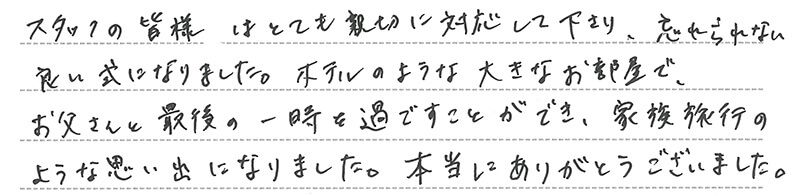 スタッフの皆様 はとても親切に対応して下さり、忘れられない
良い式になりました。ホテルのような大きなお部屋で、
お父さんと最後の一時を過ですことができ、家族旅行の
ような思い出になりました。本当にありがとうございました。